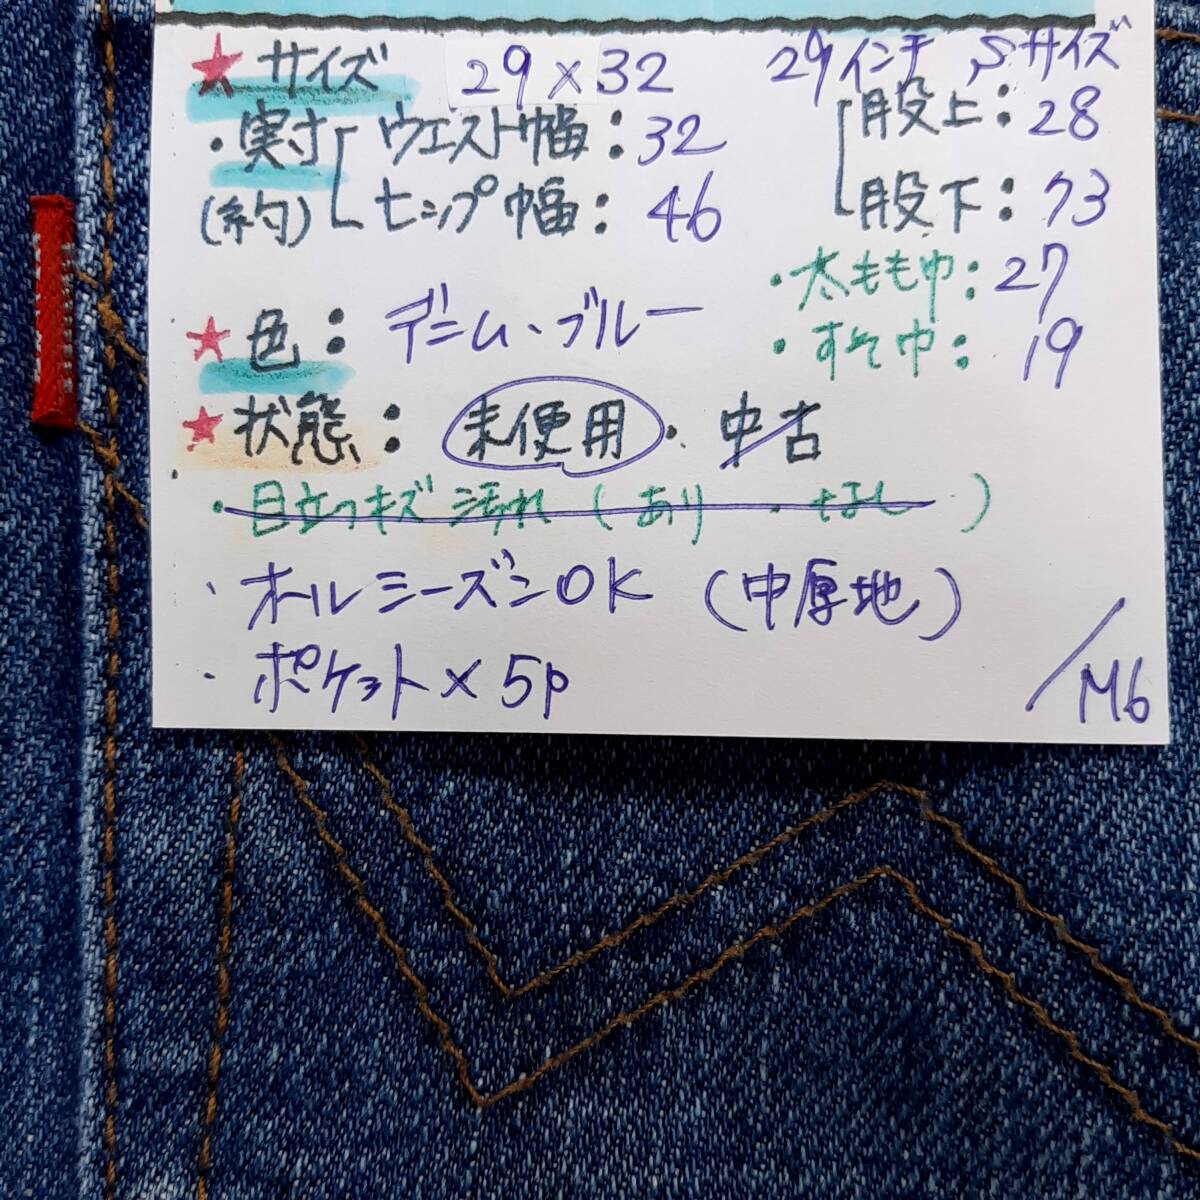 ★サイズ 29×32 29インチ Sサイズ
・実寸 ウエスト幅:32 股上:28
(約) ヒップ幅:46 股下:73
・太もも巾:27
★色:デニム、ブルー ・すそ巾:19
★状態:未使用・中古
・目立つキズ汚れ(あり・なし)
、オールシーズンOK(中厚地)
・ポケット×5p
/M6